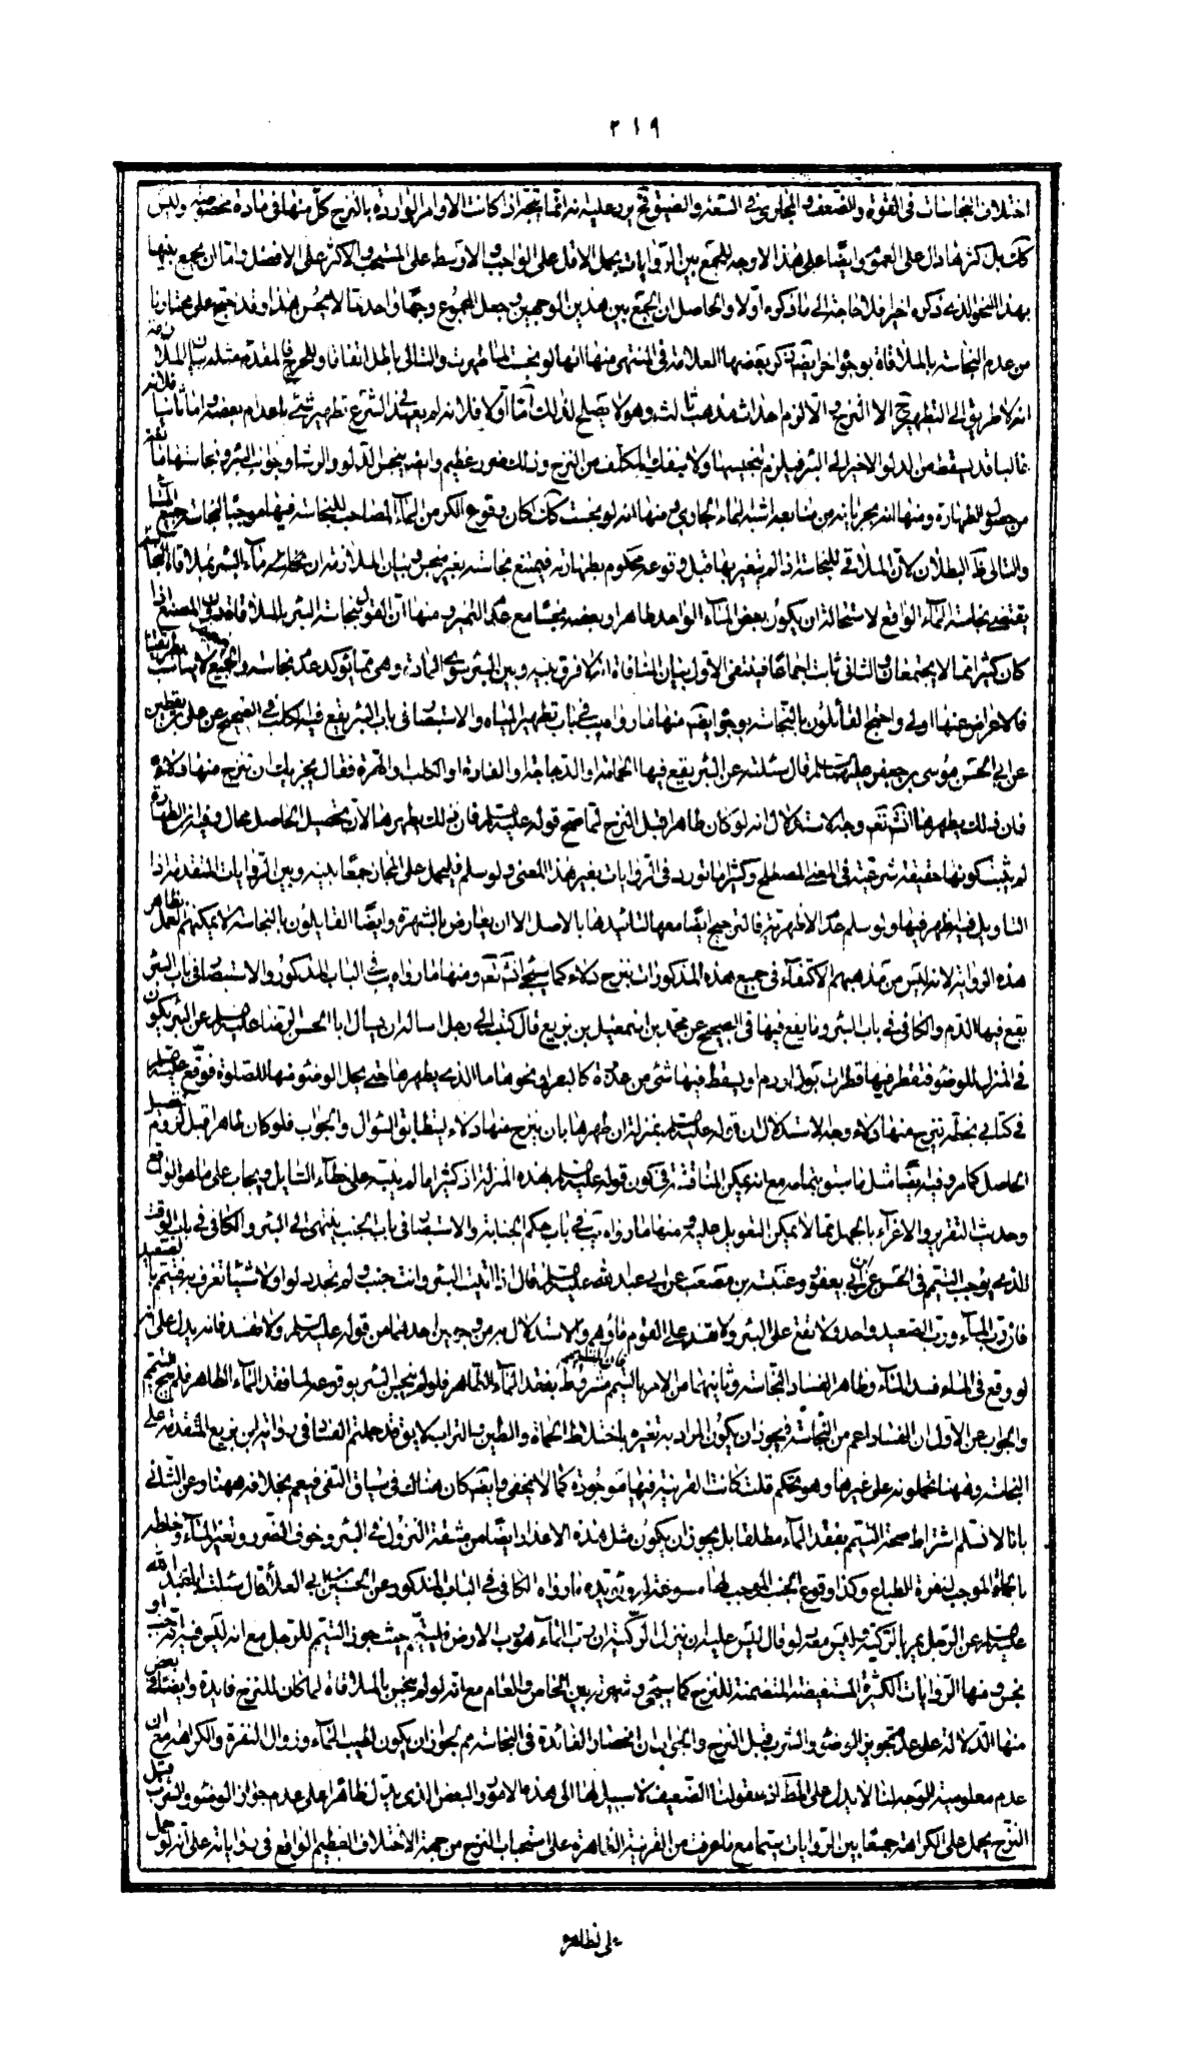 ٢١٩
اختلاف النجاسات فى القوة والضعف والمجارى فى السعة والضيق فح يرد عليه انه انما يتجه اذا كانت الاوامر الواردة بالنزح كل منها فى مادة مخصوصة وليس
كك بل اكثرها دال على العموم وايضا على هذا الاوجه للجمع بين الروايات بحمل الاقل على الواجب والاوسط على المستحب والاكثر على الافضل واما ان يجمع بينها
بهذا النحو الذى ذكره اخيرا فلا حاجة الى ما ذكره اولا والحاصل ان الجمع بين هذين الوجهين وجعل المجموع وجها واحدا مما لا يحسن هذا وقد احتج على مختارنا
من عدم النجاسة بالملاقاة بوجوه اخر ايضا ذكر بعضها العلامة فى المنتهى منها انها لو نجست لما طهرت والتالى باطل اتفاقا وللحرج فالمقدم مثله بيان الملازمة
انه لا طريق الى التطهير ح الا النزح والا لزم احداث مذهب ثالث وهو لا يصلح لذلك اما اولا فلانه لم يعهد فى الشرع تطهير شئ باعدام بعضه واما ثانيا فلانه
غالبا قد يسقط من الدلو الاخير الى البئر فيلزم تنجيسها ولا ينفك المكلف من النزح وذلك ضرر عظيم وايضا ينجس الدلو والرشا وجوانب البئر ونجاستها مانعة
من حصول الطهارة ومنها انه بجريانه من منابعه اشبه الماء الجارى ومنها انه لو نجست كك لكان وقوع الكر من الماء المصاحب للنجاسة فيها موجبا لنجاسة جميع الماء
والتالى ظ البطلان لان الملاقى للنجاسة اذا لم يتغير بها قبل وقوعه محكوم بطهارته فيمتنع نجاسته بغير منجس وبيان الملازمة ان نجاسة ماء البئر بملاقاة النجاسة
يقتضى نجاسة الماء الواقع لاستحالة ان يكون بعض الماء الواحد طاهرا وبعضه نجسا مع عدم التميز ومنها ان القول بنجاسة البئر بالملاقاة وبان المصنع اذا
كان كثيرا مما لا يجتمعان والثانى ثابت اجماعا فينتفى الاول بيان المنافاة انه لا فرق بينه وبين البئر سوى المادة وهى مما يؤكد عدم نجاسته والجميع لا يناسب طريقتنا
فالاعراض عنها اولى واحتج القائلون بالنجاسة بوجوه ايضا منها ما رواه يب فى باب تطهير المياه والاستبصار فى باب البئر يقع فيها الكلب فى الصحيح عن على بن يقطين
عن ابى الحسن موسى بن جعفر عليهما السلام قال سئلته عن البئر يقع فيها الحمامة او الدجاجة او الفارة او الكلب او الهرة فقال يجزيك ان تنزح منها دلاء
فان ذلك يطهرها انشاء الله تعالى وجه الاستدلال انه لو كان طاهرا قبل النزح لما صح قوله عليه السلام فان ذلك يطهرها لان تحصيل الحاصل محال وفيه ان الطهارة
لم يثبت كونها حقيقة شرعية فى المعنى المصطلح وكثيرا ما تورد فى الروايات بغير هذا المعنى ولو سلم فليحمل على المجاز جمعا بينه وبين الروايات المتقدمة اذا
التاويل فيه اظهر فيها ولو سلم عدم الاظهرية فالترجيح ايضا معها لتاييدها بالاصل الا ان يعارض بالشهرة وايضا القايلون بالنجاسة لا يمكنهم العمل بظاهر
هذه الرواية لانه ليس من مذهبهم الاكتفاء فى جميع هذه المذكورات بنزح دلاء كما سيجئ انشاء الله تعالى ومنها ما رواه يب فى الباب المذكور والاستبصار فى باب البئر
يقع فيها الدم والكافى فى باب البئر وما يقع فيها فى الصحيح عن محمد بن اسمعيل بن بزيع قال كتبت الى رجل اساله ان يسال ابا الحسن الرضا عليه السلام عن البئر يكون
فى المنزل للوضوء فتقطر فيها قطرات بول او دم او يسقط فيها شئ من عذرة كالبعرة او نحوها ما الذى يطهرها حتى يحل الوضوء منها للصلوة فوقع عليه السلام
فى كتابى بخطه تنزح منها دلاء وجه الاستدلال ان قوله عليه السلام بمنزلة ان طهرها بان ينزح منها دلاء ليتطابق السؤال والجواب فلو كان طاهرا قبل لزوم تحصيل
الحاصل كما مر وفيه ايضا مثل ما سبق بتمامه مع انه يمكن المناقشة فى كون قوله عليه السلام بهذه المنزلة اذ كثيرا ما لم ينبه على خطاء السائل ويجاب على ما هو الواقع
وحديث التقرير والاغراء بالجهل مما لا يمكن التعويل عليه ومنها ما رواه يب فى باب حكم الجنابة والاستبصار فى باب الجنب ينتهى الى البئر والكافى فى باب الوقت
الذى يوجب التيمم فى الحسن عن ابن ابى يعفور وعنبسة بن مصعب عن ابى عبد الله عليه السلام قال اذا اتيت البئر وانت جنب ولم تجد دلوا ولا شيئا تغرف به فتيمم بالصعيد
فان رب الماء ورب الصعيد واحد ولا تقع على البئر ولا تفسد على القوم ماؤهم والاستدلال به من وجهين احدهما من قوله عليه السلام ولا تفسد فانه يدل على انه
لو وقع فى الماء فسد الماء وظاهر الفساد النجاسة وثانيهما من الامر بالتيمم فان التيمم مشروط بفقد الماء الطاهر فلو لم ينجس البئر بوقوعه لما فقد الماء الطاهر فلم يصح التيمم
والجواب عن الاول ان الفساد اعم من النجاسة فيجوز ان يكون المراد به تغيره باختلاط الحماة والطين والتراب لا يق قد حملتم الفساد فى رواية ابن بزيع المتقدمة على
النجاسة وههنا تحملونه على غيرها وهو تحكم قلت كانت القرينة فيها موجودة كما لا يخفى وايضا كان هناك فى سياق النفى فيعم بخلافه ههنا وعن الثانى
بانا لا نسلم اشتراط صحة التيمم بفقد الماء مطلقا بل يجوز ان يكون مثل هذه الاعذار ايضا من مشقة النزول فى البئر وخوف الضرر وتغير الماء وخلطه
بالحماة الموجب لنفرة الطباع وكذا وقوع الجنب الموجب لها مسوغة له ويؤيده ما رواه الكافى فى الباب المذكور عن الحسين بن ابى العلا قال سئلت ابا عبد الله
عليه السلام عن الرجل يمر بالركية وليس معه دلو قال ليس عليه ان ينزل الركية ان رب الماء هو رب الارض فليتيمم حيث جوز التيمم للرجل مع انه ليس فيه انه جنب او
نجس ومنها الروايات الكثيرة المستفيضة المتضمنة للنزح كما سيجئ وشهرته بين الخاص والعام مع انه لو لم ينجس بالملاقاة لما كان للنزح فايدة وايضا فى بعض
منها الدلالة على عدم تجويز الوضوء والشرب قبل النزح والجواب ان انحصار الفائدة فى النجاسة مم لجواز ان يكون لطيب الماء وزوال النفرة والكراهة مع ان
عدم معلومية الوجه لنا لا يدل على المط اذ عقولنا الضعيف لا سبيل لها الى هذه الامور والبعض الذى يدل ظاهرا على عدم جواز الوضوء والشرب قبل
النزح يحمل على الكراهة جمعا بين الروايات سيما مع ما عرفت من القرينة الظاهرة على استحباب النزح من جهة الاختلاف العظيم الواقع فى رواياته على انه لو حمل
على نظاهر